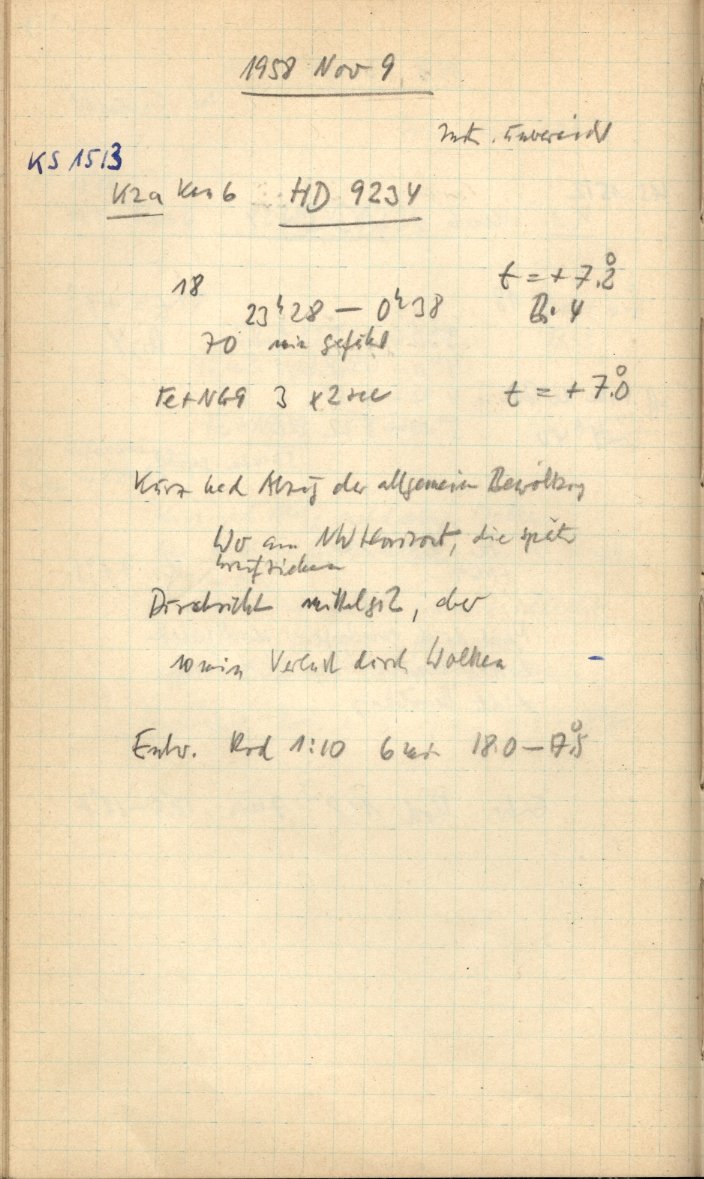 1958 Nov 9
Instr. unverändert
KS 1513
K2a Kas 6 HD 9234
18
t = + 7.°2
23ʰ28 — 0ʰ38
Bi. 4
70 min geführt
Fe+NG9 3 x 2 sec t = + 7.°0
Kurz nach Abzug der allgemeinen Bewölkung
Wo am NW Horizont, die später
heraufziehen
Durchsicht mittelgut, aber
10 min Verlust durch Wolken
Entw. Rod 1:10 6 min 18.0 — 17.°5